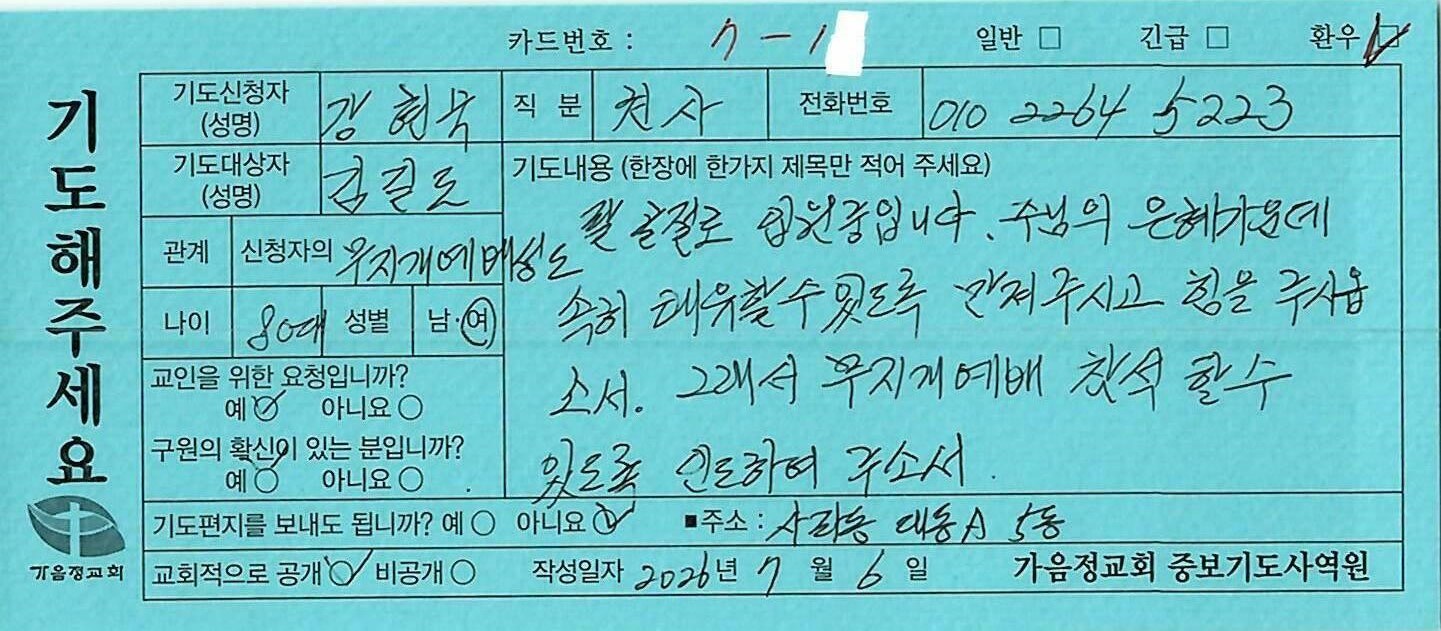 카드번호 : 7 - 1 일반 □ 긴급 □ 환우 ☑
기도해주세요
기도신청자 (성명) 강현숙 직 분 권사 전화번호 010 2264 5223
기도대상자 (성명) 김길도
관계 신청자의 무지개예배성도
나이 80대 성별 남·여
교인을 위한 요청입니까?
예 ☑ 아니요 ○
구원의 확신이 있는 분입니까?
예 ☑ 아니요 ○
기도내용 (한장에 한가지 제목만 적어 주세요)
팔 골절로 입원중입니다. 주님의 은혜가운데
속히 태유할수있도록 만져주시고 힘을 주시옵
소서. 그래서 무지개예배 참석 할수
있도록 인도하여 주소서.
기도편지를 보내도 됩니까? 예 ○ 아니요 ☑ ■주소 : 사파동 대동A 5동
교회적으로 공개 ☑ 비공개 ○ 작성일자 2026년 7 월 6 일 가음정교회 중보기도사역원
가음정교회